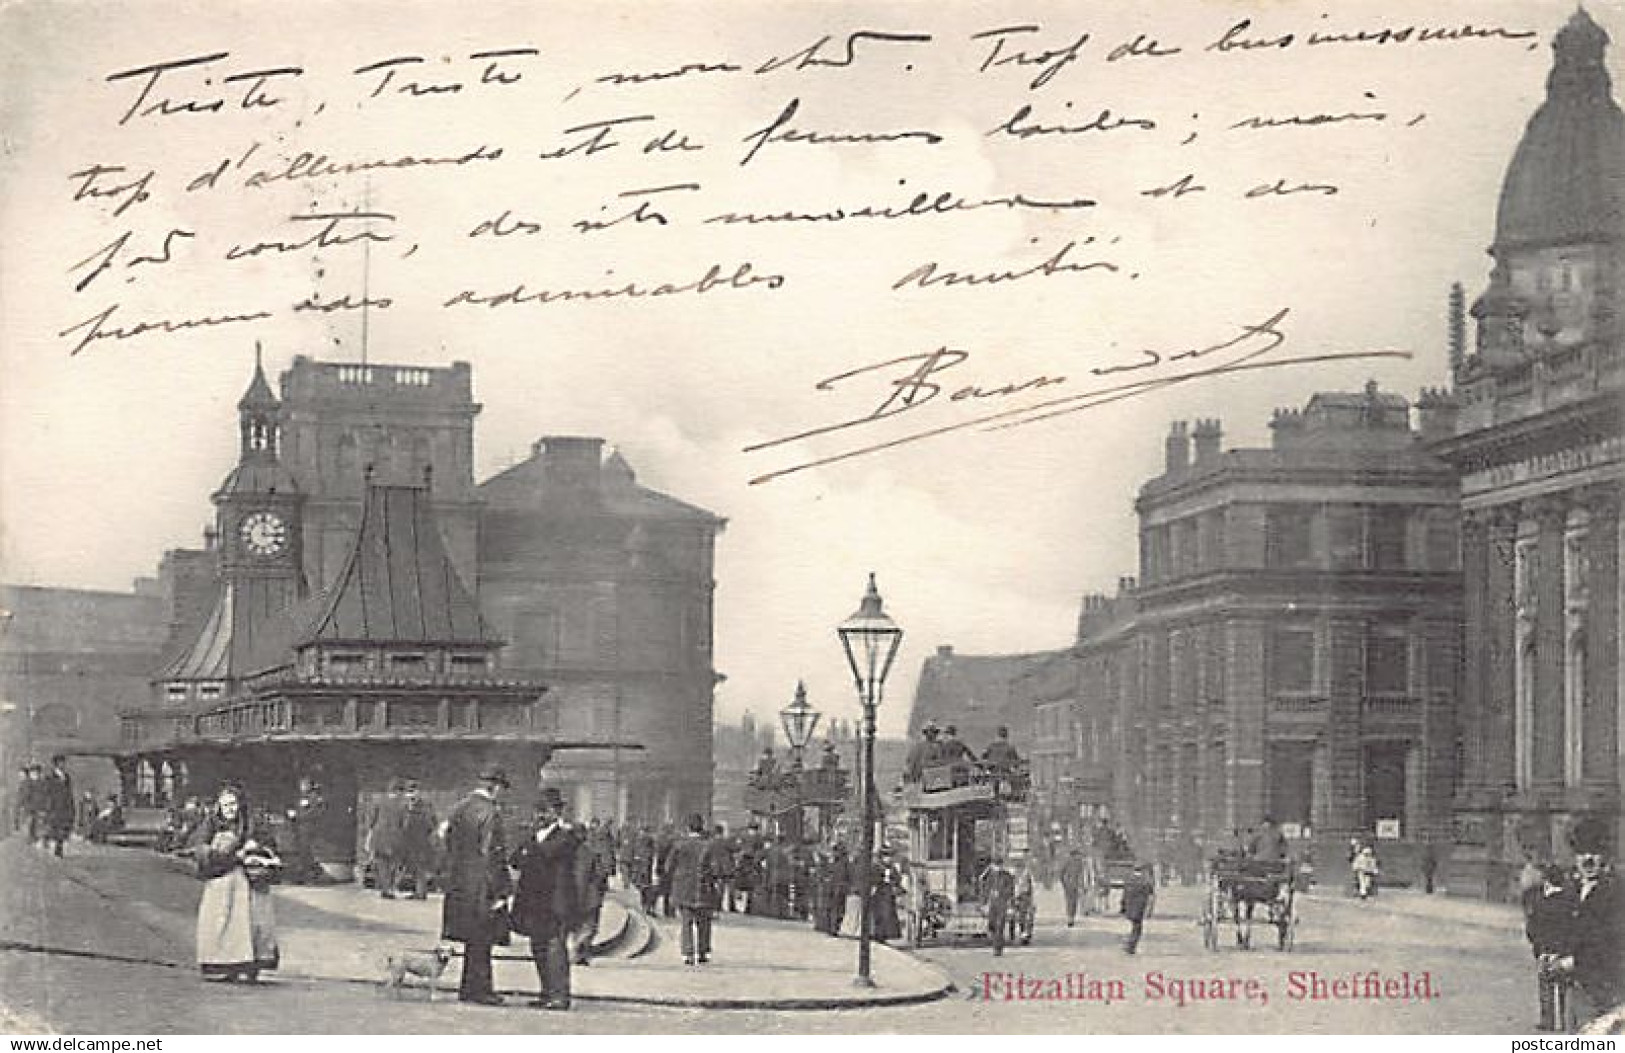 Triste, Triste, mon cher. Trop de businessmen,
trop d'allemands et de femmes laides ; mais,
par contre, des sites merveilleux et des
promenades admirables Amitiés.
Fitzallan Square, Sheffield.
www.delcampe.net
postcardman